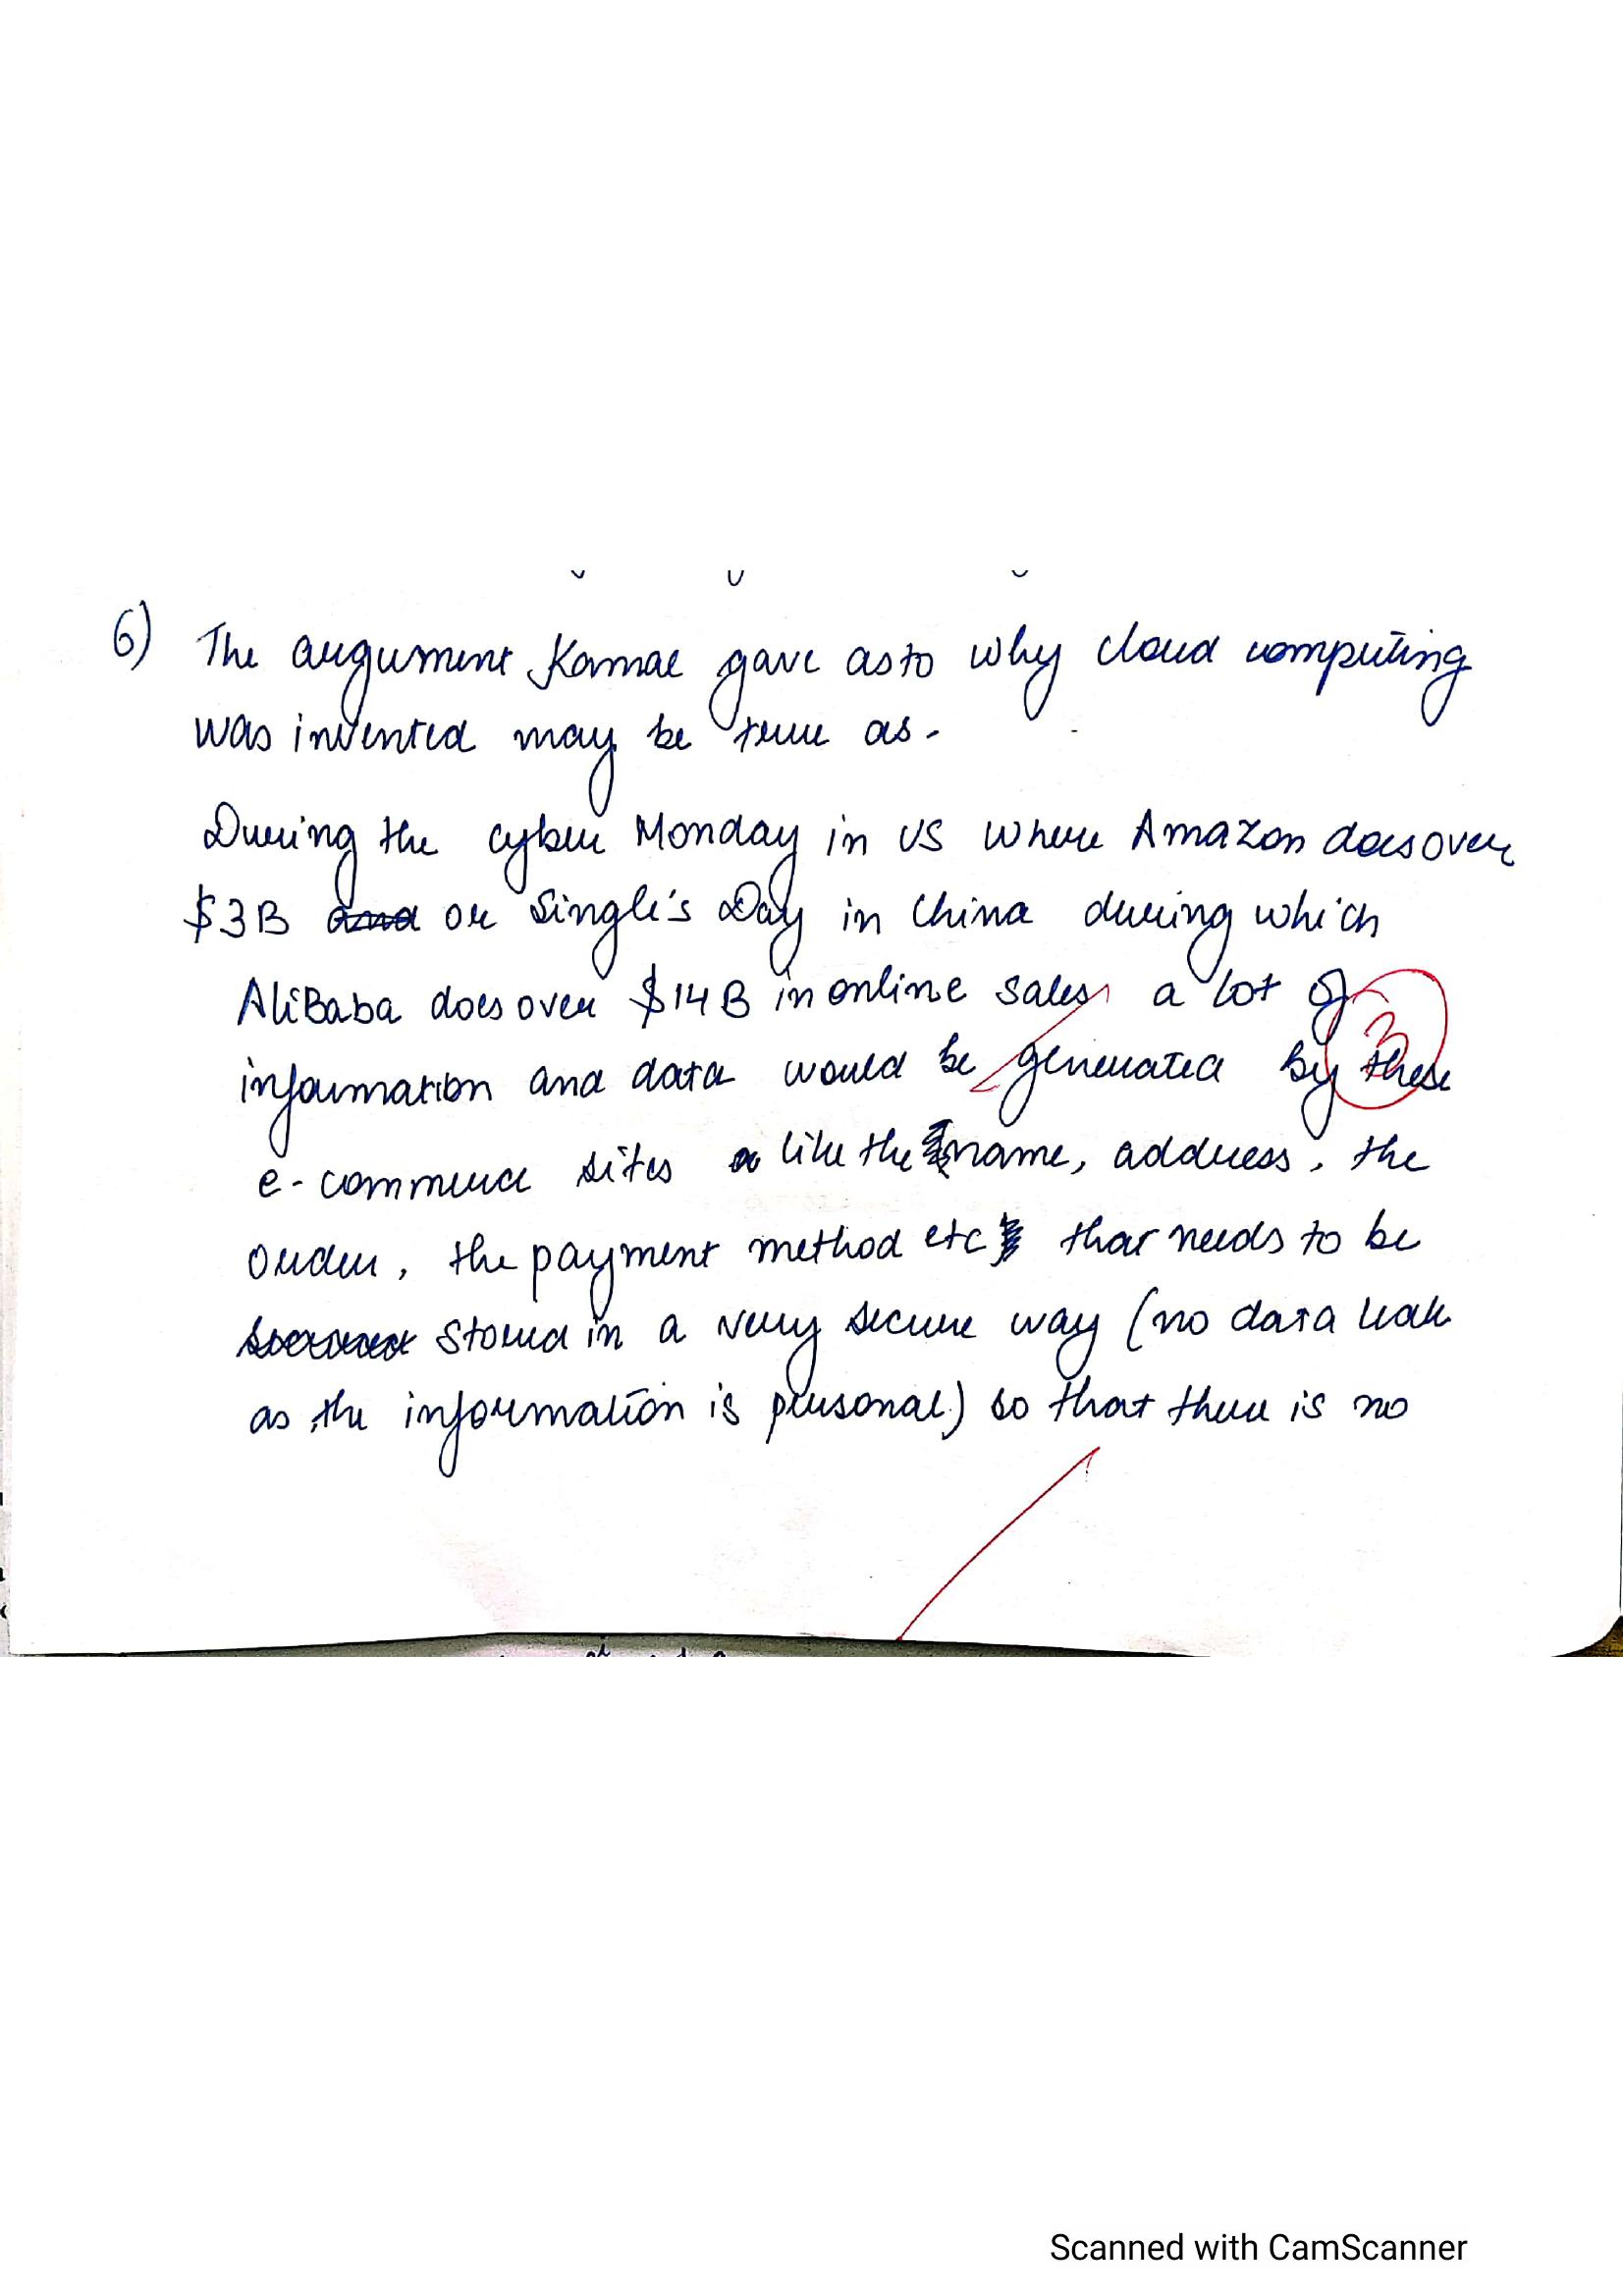 6) The argument Kamal gave as to why cloud computing
was invented may be true as -
During the cyber Monday in US where Amazon does over
$3B and or Single's Day in China during which
AliBaba does over $14B in online sales a lot of
3
information and data would be generated by these
e-commerce sites like the name, address, the
order, the payment method etc that needs to be
stored in a very secure way (no data leak
as the information is personal) so that there is no
Scanned with CamScanner